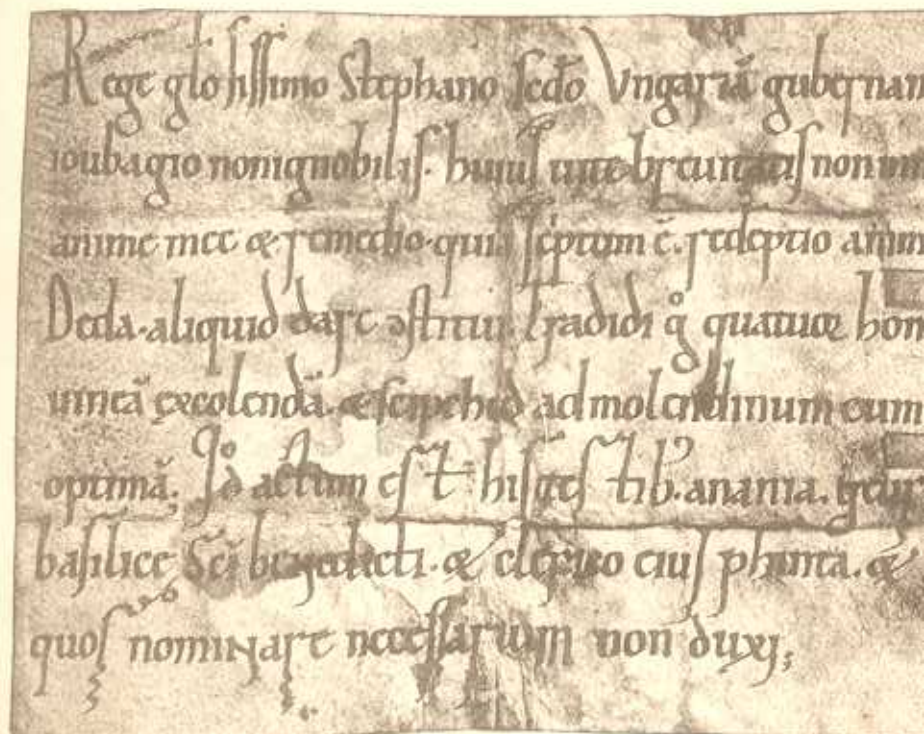 Rege gloſiſſimo Stephano ſecdo Vngariā gubernan
ioubagio nonignobiliſ. huiuſ uite breuitatiſ non
anime mee & remedio. quia ſcriptum ē. redeptio anim
Deda. aliquid dare ꝯſtitui. Tradidi quatuor hom
uineā excolendā. & ad molendinum cum
optimā. Id actum eſt hiſ teſtib'. anania.
baſilice Sci benedicti. & clerico eiuſ phinta. &
quoſ nominare neceſſarium non duxi;